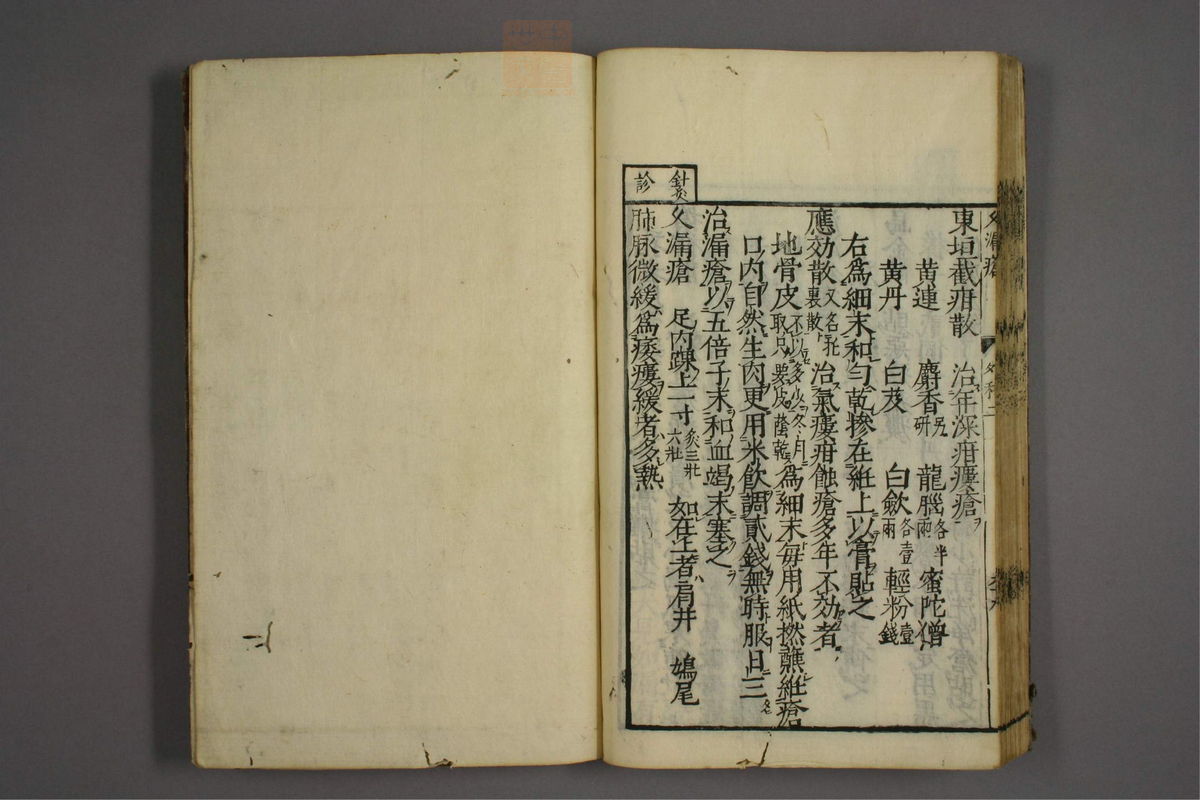 久漏瘡
東垣截疳散　治年深疳瘻瘡
黄連　麝香另研　龍腦各半兩　蜜陀僧
黄丹　白芨　白歛各壹兩　輕粉壹錢
右爲細末和勻乾摻在絍上以膏貼之
應効散又名托裏散　治氣瘻疳蝕瘡多年不効者
地骨皮不以多少冬月取只要皮蔭乾　爲細末每用紙撚蘸絍瘡
口内自然生肉更用米飲調貳錢無時服日三
治漏瘡以五倍子末和血竭末塞之
鍼灸
久漏瘡　足内踝上一寸灸三壯六壯　如在上者肩井　鳩尾
診
肺脉微緩爲痿瘻緩者多熱